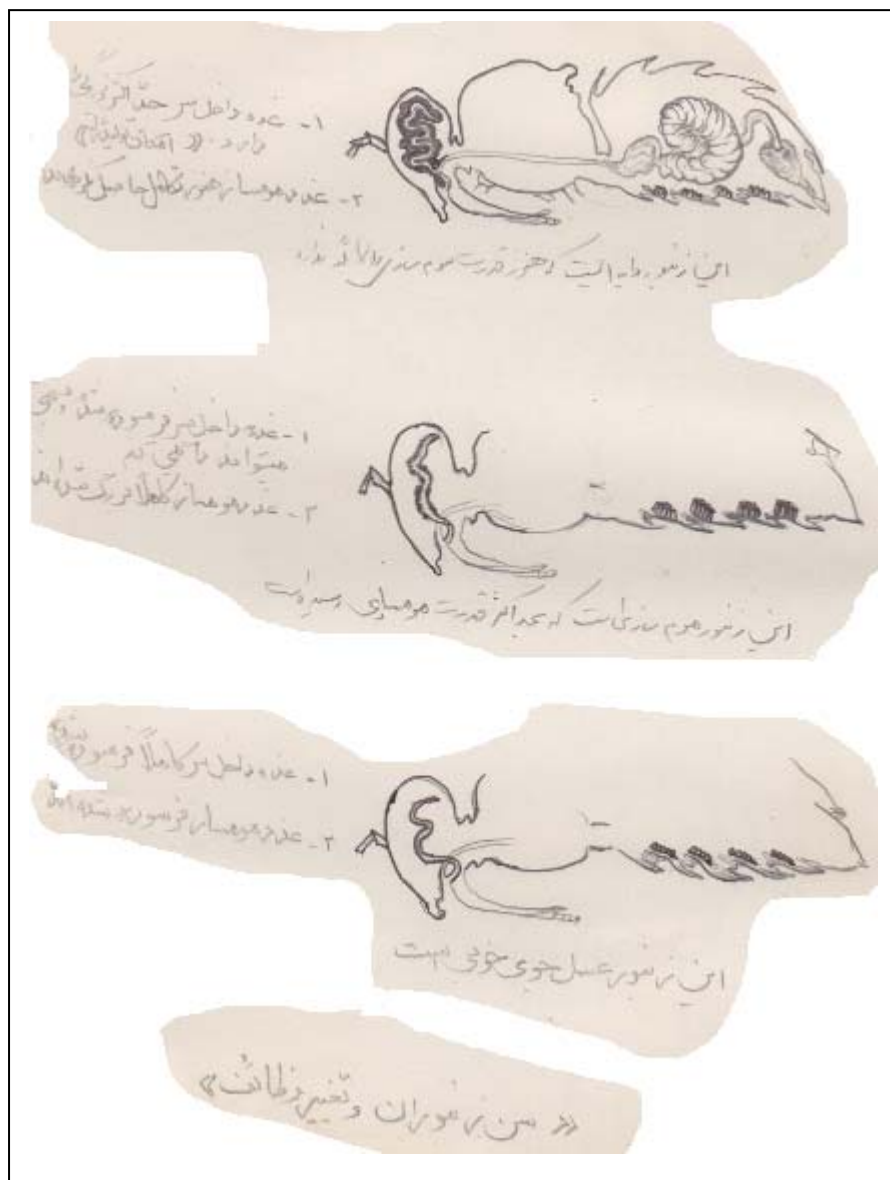 ۱- غده داخل سر حدّاکثر
دارد
۲- غدد مومساز هنوز تکامل حاصل
این زنبور دایه ایست که هنوز قدرت موم سازی
۱- غده داخل سر فرسوده شده
میتواند
۲- غدد مومساز کاملاً بزرگ شده‌اند
این زنبور موم سازی است که بحداکثر قدرت مومسازی رسیده است
۱- غده داخل سر کاملاً فرسوده شده
۲- غدد مومساز فرسوده شده‌اند
این زنبور عسل جوی خوبی است
« سن زنبوران و تغییر وظائف »